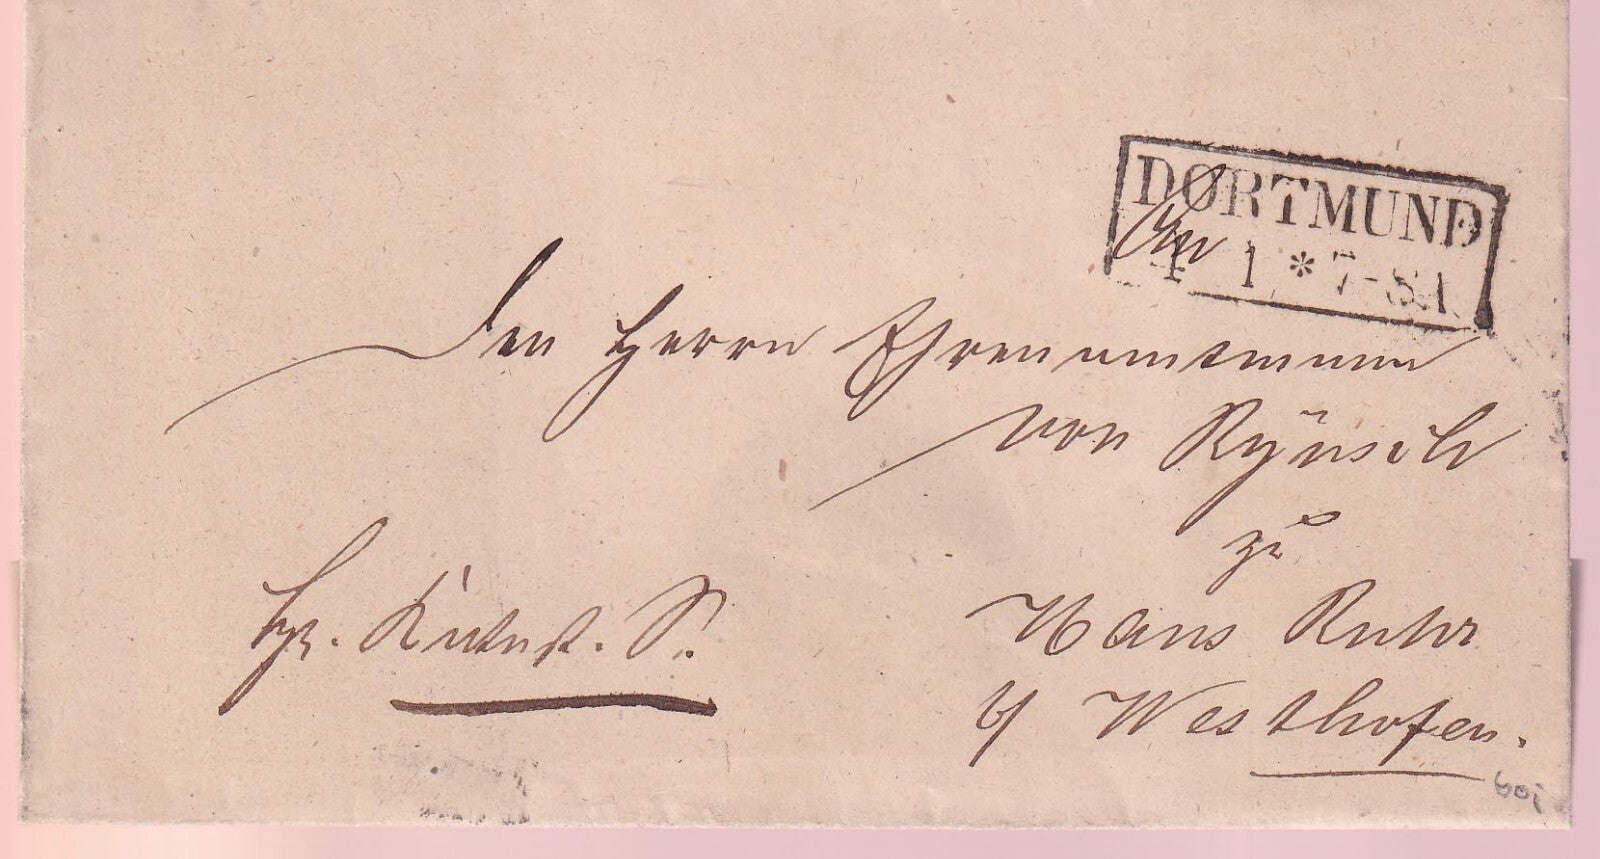 DORTMUND
4 1 * 7-8
An
den Herrn Ehrenamtmann
von Rynsch
zu
Haus Ruhr
b/ Westhofen.